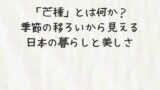 「芒種」とは何か？
季節の移ろいから見える
日本の暮らしと美しさ